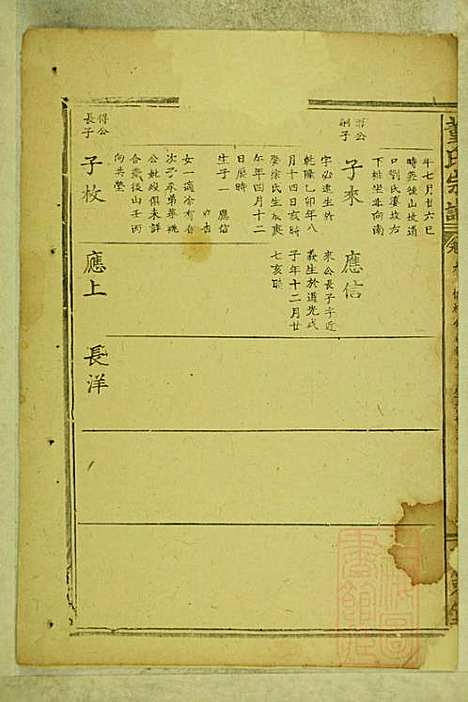 董氏宗譜
年七月廿六巳
時葬後山坡道
口劉氏墳坟右
下排坐𠀋向南
子來
字必達生於
乾隆乙卯年八
月十四日亥時
娶徐氏生於庚
午年四月十二
日辰時
生子一 應信
應信
來公長子字近
義生於道光戊
子年十二月廿
七亥時
得公
長子
子枚
女一適涂有
次子來弟葬
公妣歿俱未詳
合葬後山壬丙
向共塋
應上
長洋